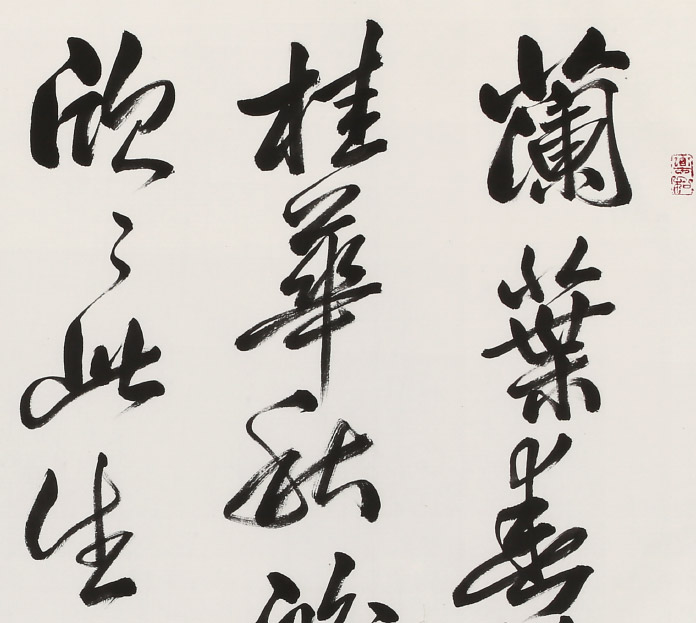 蘭葉春
桂華秋皎
欣〻此生